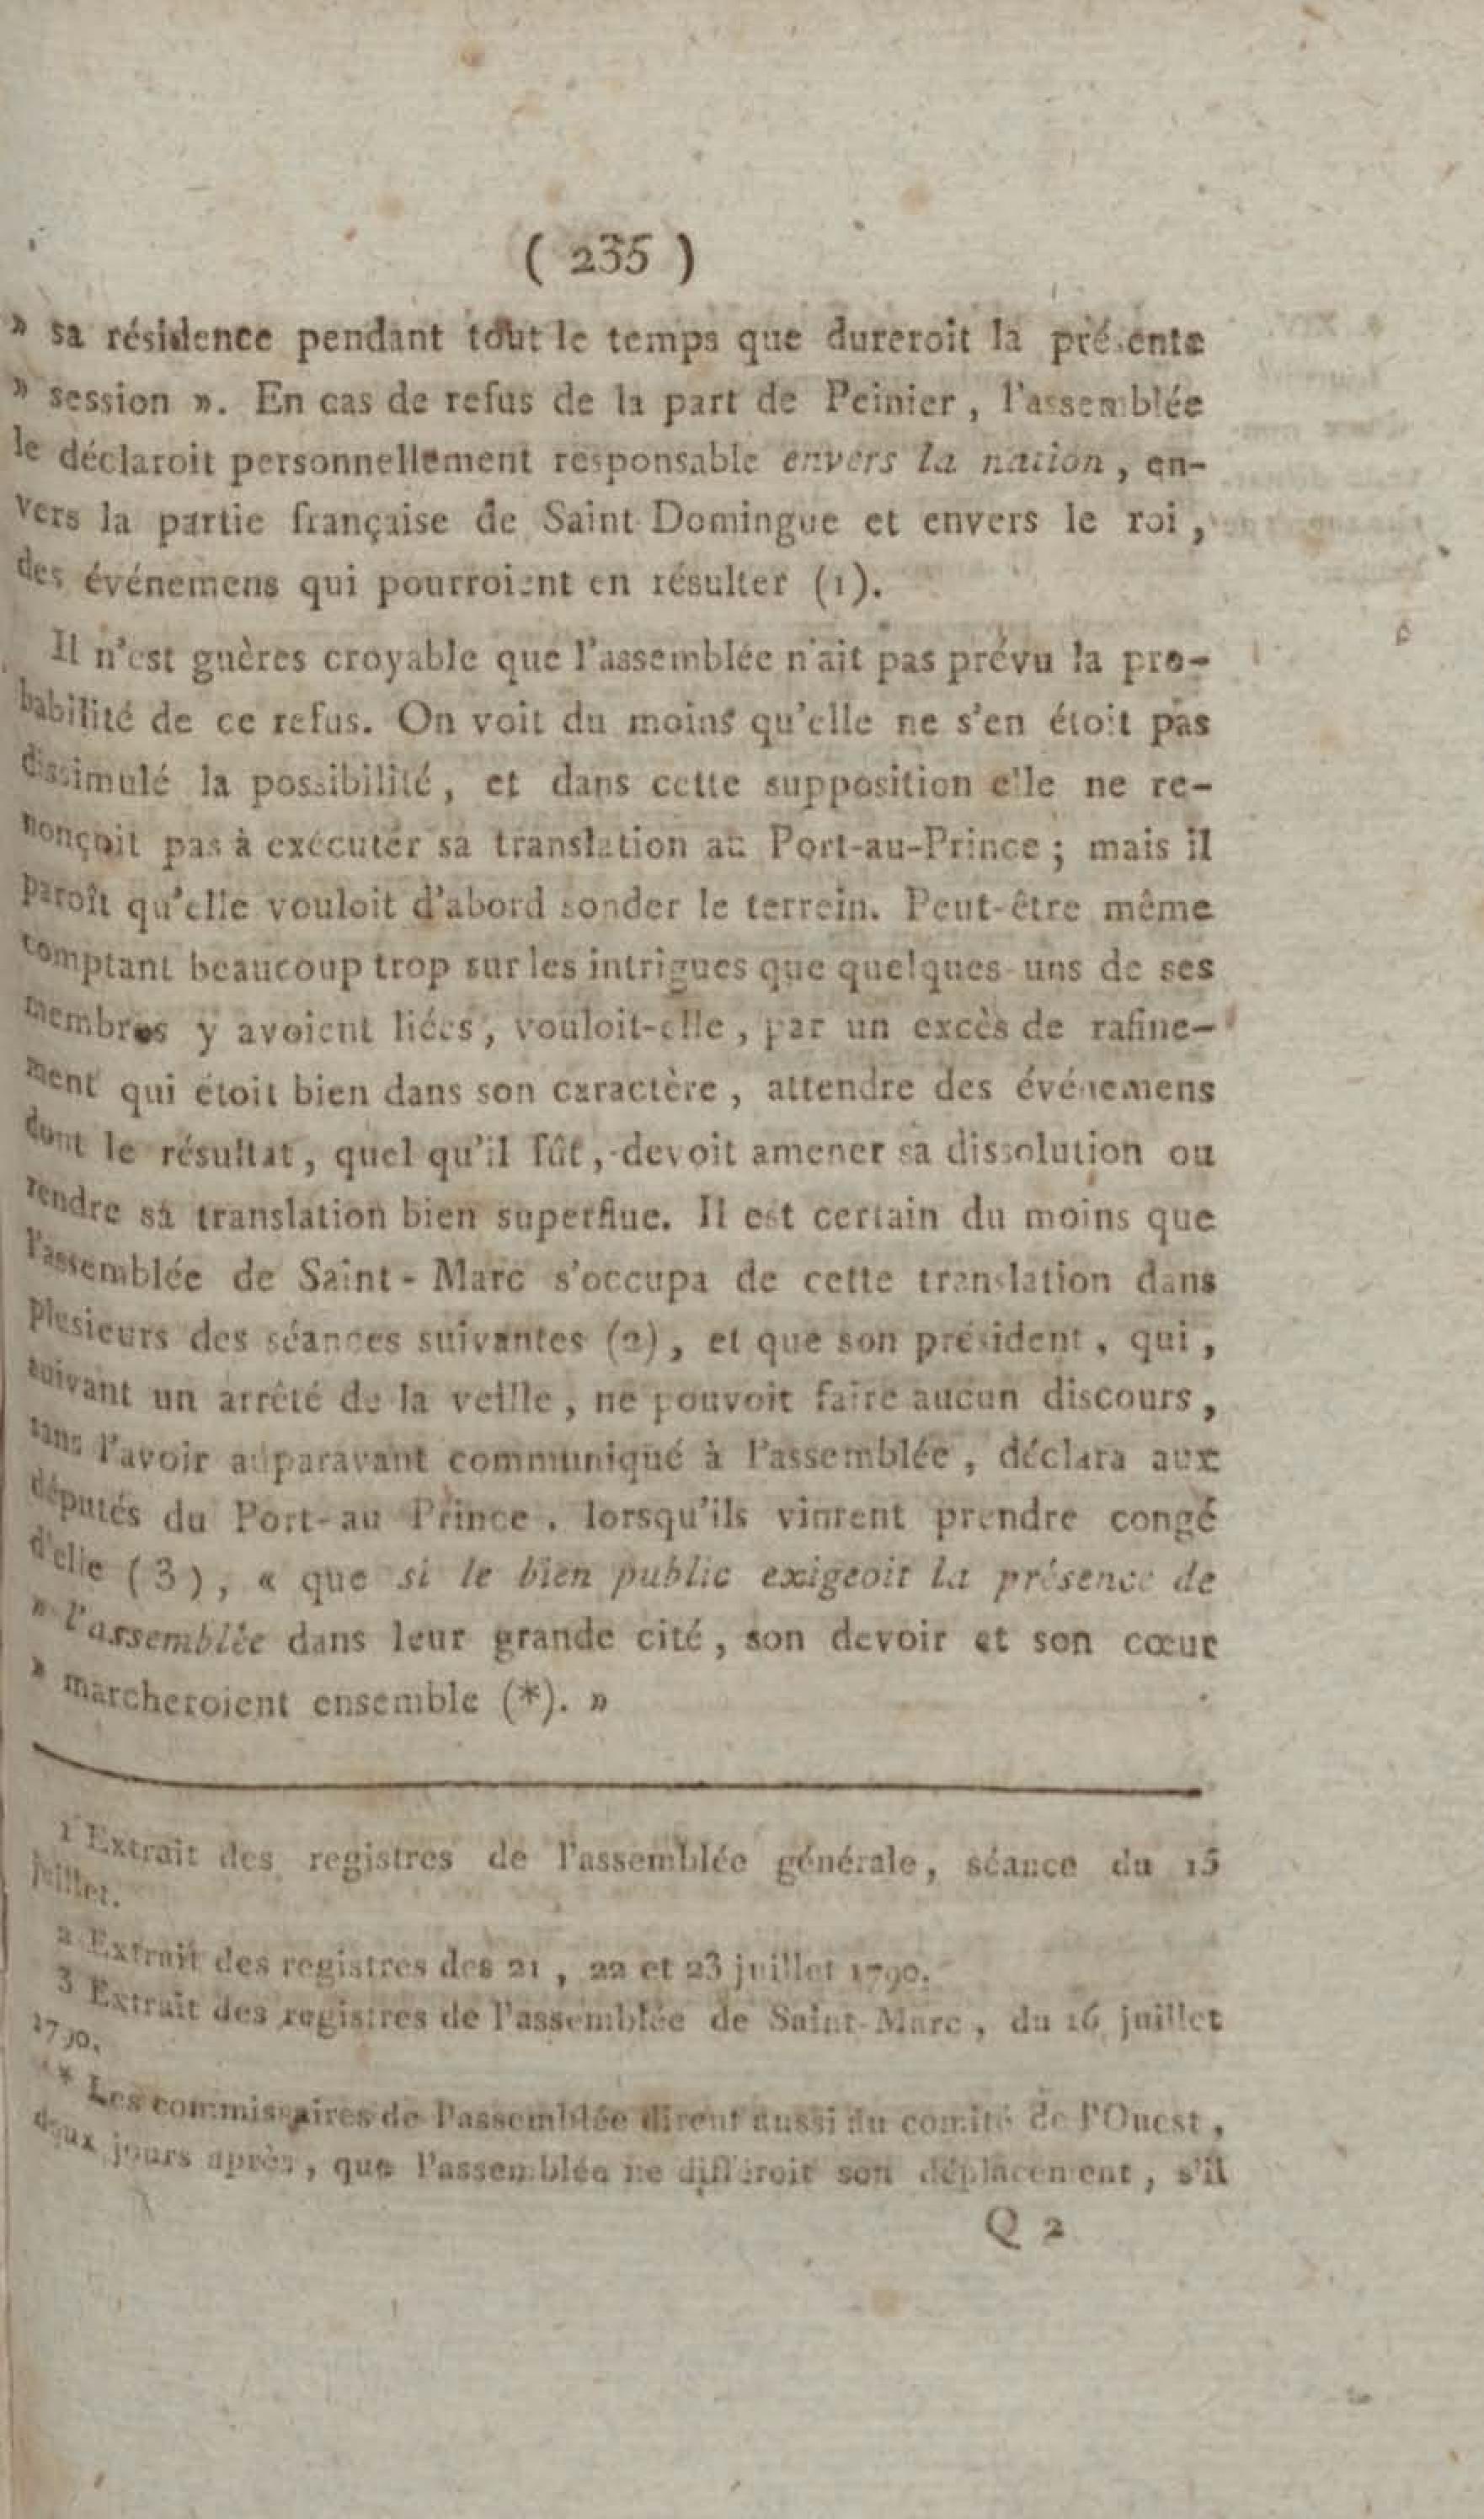 ( 235 )
» sa résidence pendant tout le temps que dureroit la présente
» session ». En cas de refus de la part de Peinier, l'assemblée
le déclaroit personnellement responsable envers la nation, en-
vers la partie française de Saint Domingue et envers le roi,
des événemens qui pourroient en résulter (1).
Il n'est guères croyable que l'assemblée n'ait pas prévu la pro-
babilité de ce refus. On voit du moins qu'elle ne s'en étoit pas
dissimulé la possibilité, et dans cette supposition elle ne re-
nonçoit pas à exécuter sa translation au Port-au-Prince; mais il
paroît qu'elle vouloit d'abord sonder le terrein. Peut-être même
comptant beaucoup trop sur les intrigues que quelques-uns de ses
membres y avoient liées, vouloit-elle, par un excès de rafine-
ment qui étoit bien dans son caractère, attendre des événemens
dont le résultat, quel qu'il fût, devoit amener sa dissolution ou
rendre sa translation bien superflue. Il est certain du moins que
l'assemblée de Saint-Marc s'occupa de cette translation dans
plusieurs des séances suivantes (2), et que son président, qui,
suivant un arrêté de la veille, ne pouvoit faire aucun discours,
sans l'avoir auparavant communiqué à l'assemblée, déclara aux
députés du Port-au Prince, lorsqu'ils vinrent prendre congé
d'elle (3), « que si le bien public exigeoit la présence de
» l'assemblée dans leur grande cité, son devoir et son cœur
» marcheroient ensemble (*). »
1 Extrait des registres de l'assemblée générale, séance du 15
juillet.
2 Extrait des registres des 21, 22 et 23 juillet 1790.
3 Extrait des registres de l'assemblée de Saint-Marc, du 16 juillet
1790.
* Les commissaires de l'assemblée dirent aussi au comité de l'Ouest,
deux jours après, que l'assemblée ne différoit son déplacement, s'il
Q 2